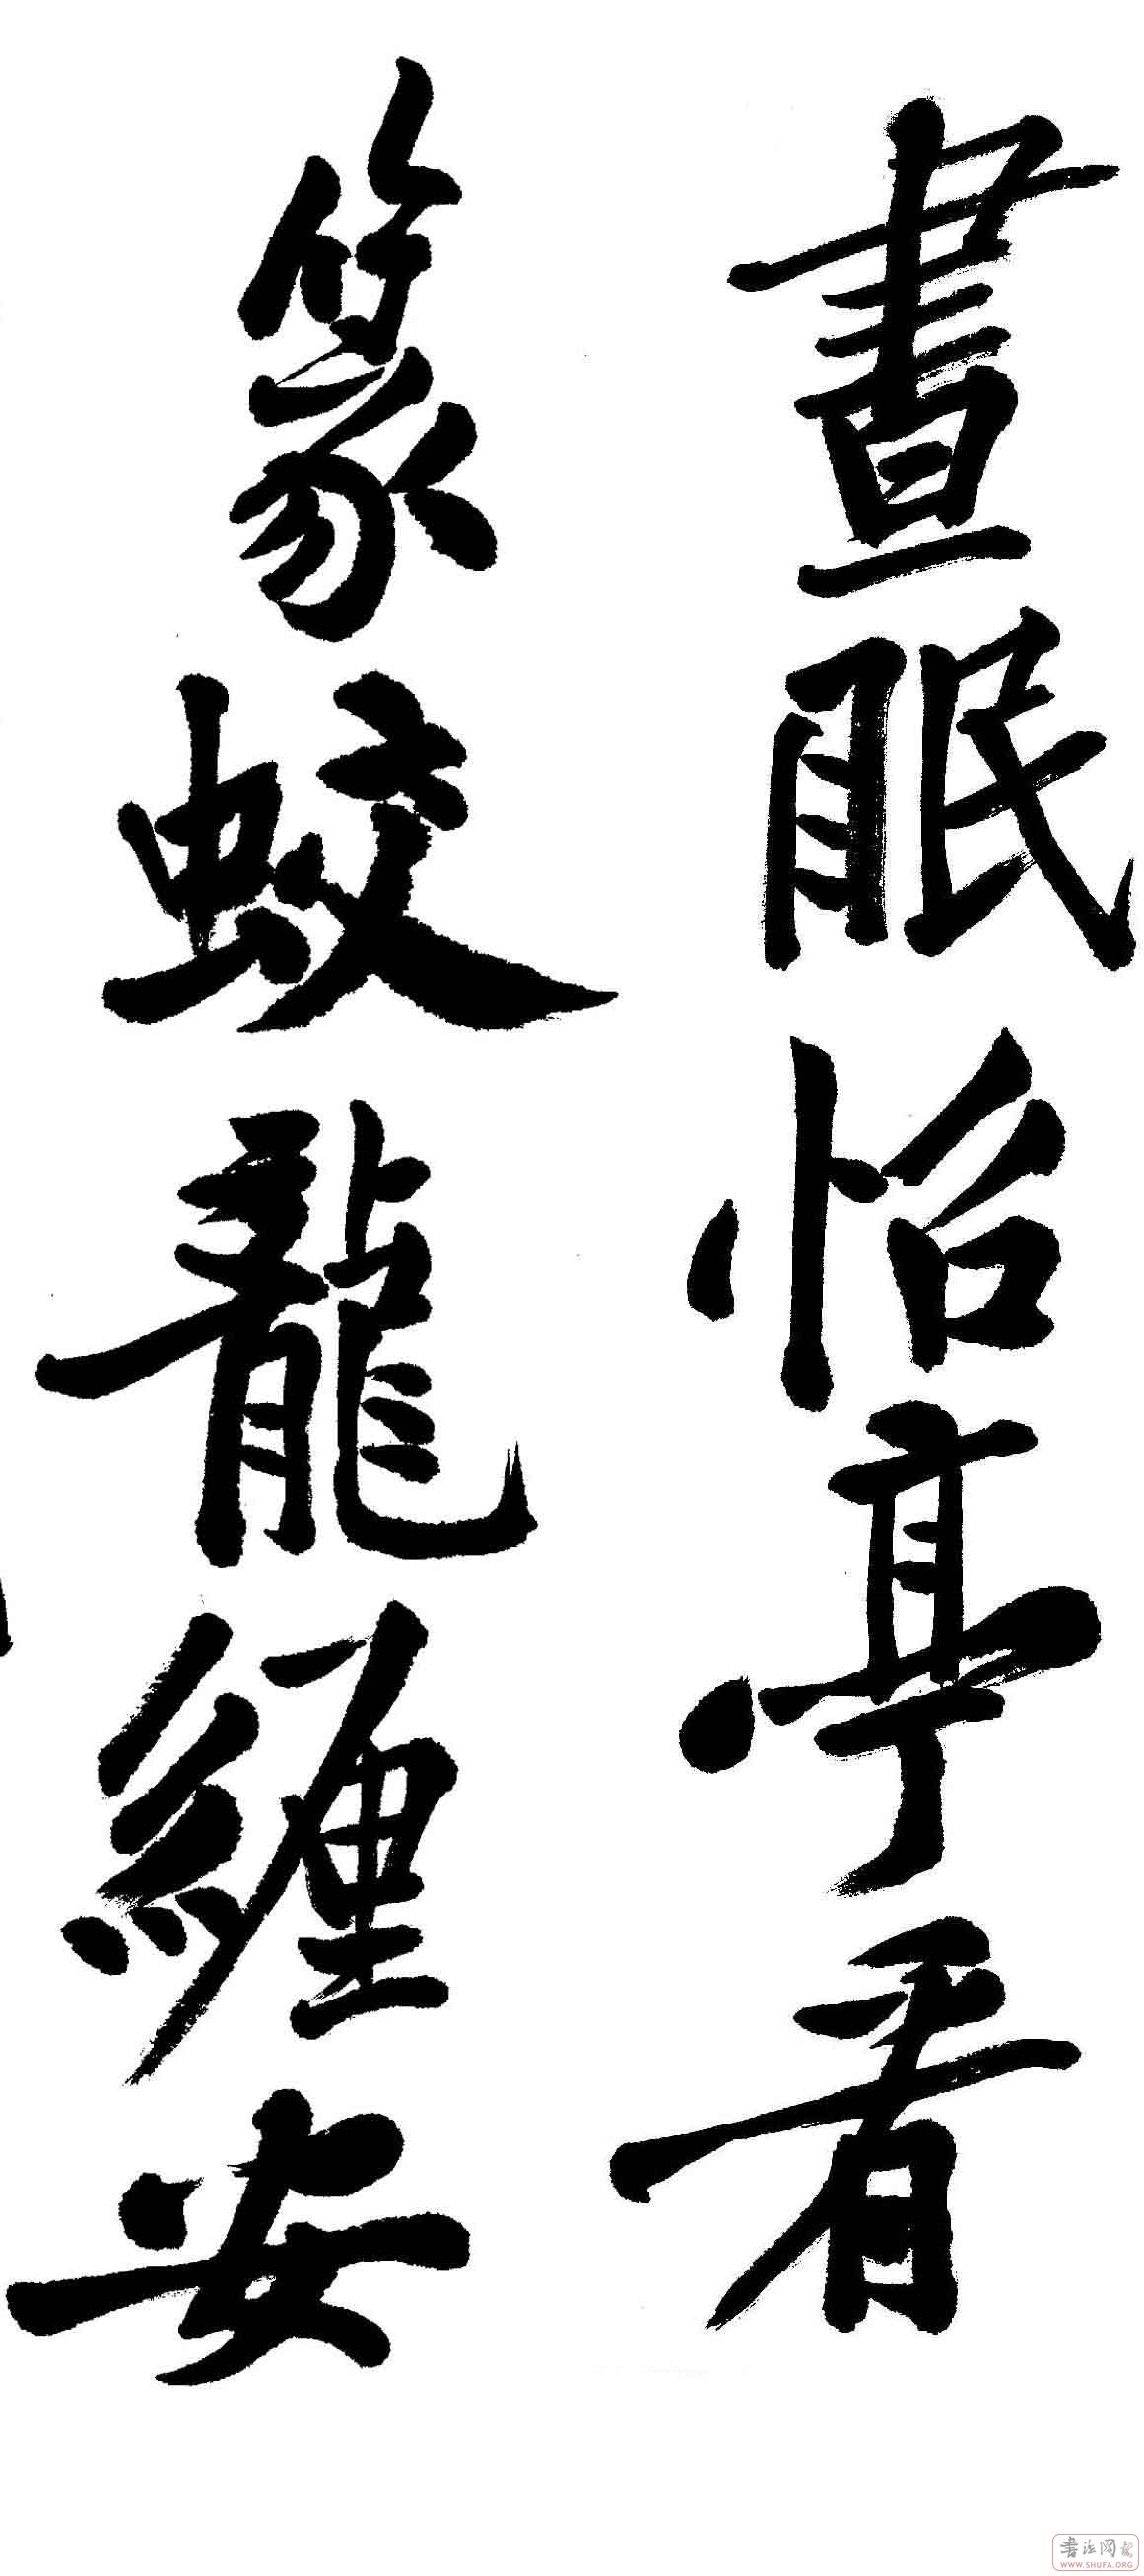 晝眠怡亭看
篆蛟龍纏安
书法网
WWW.SHUFA.ORG